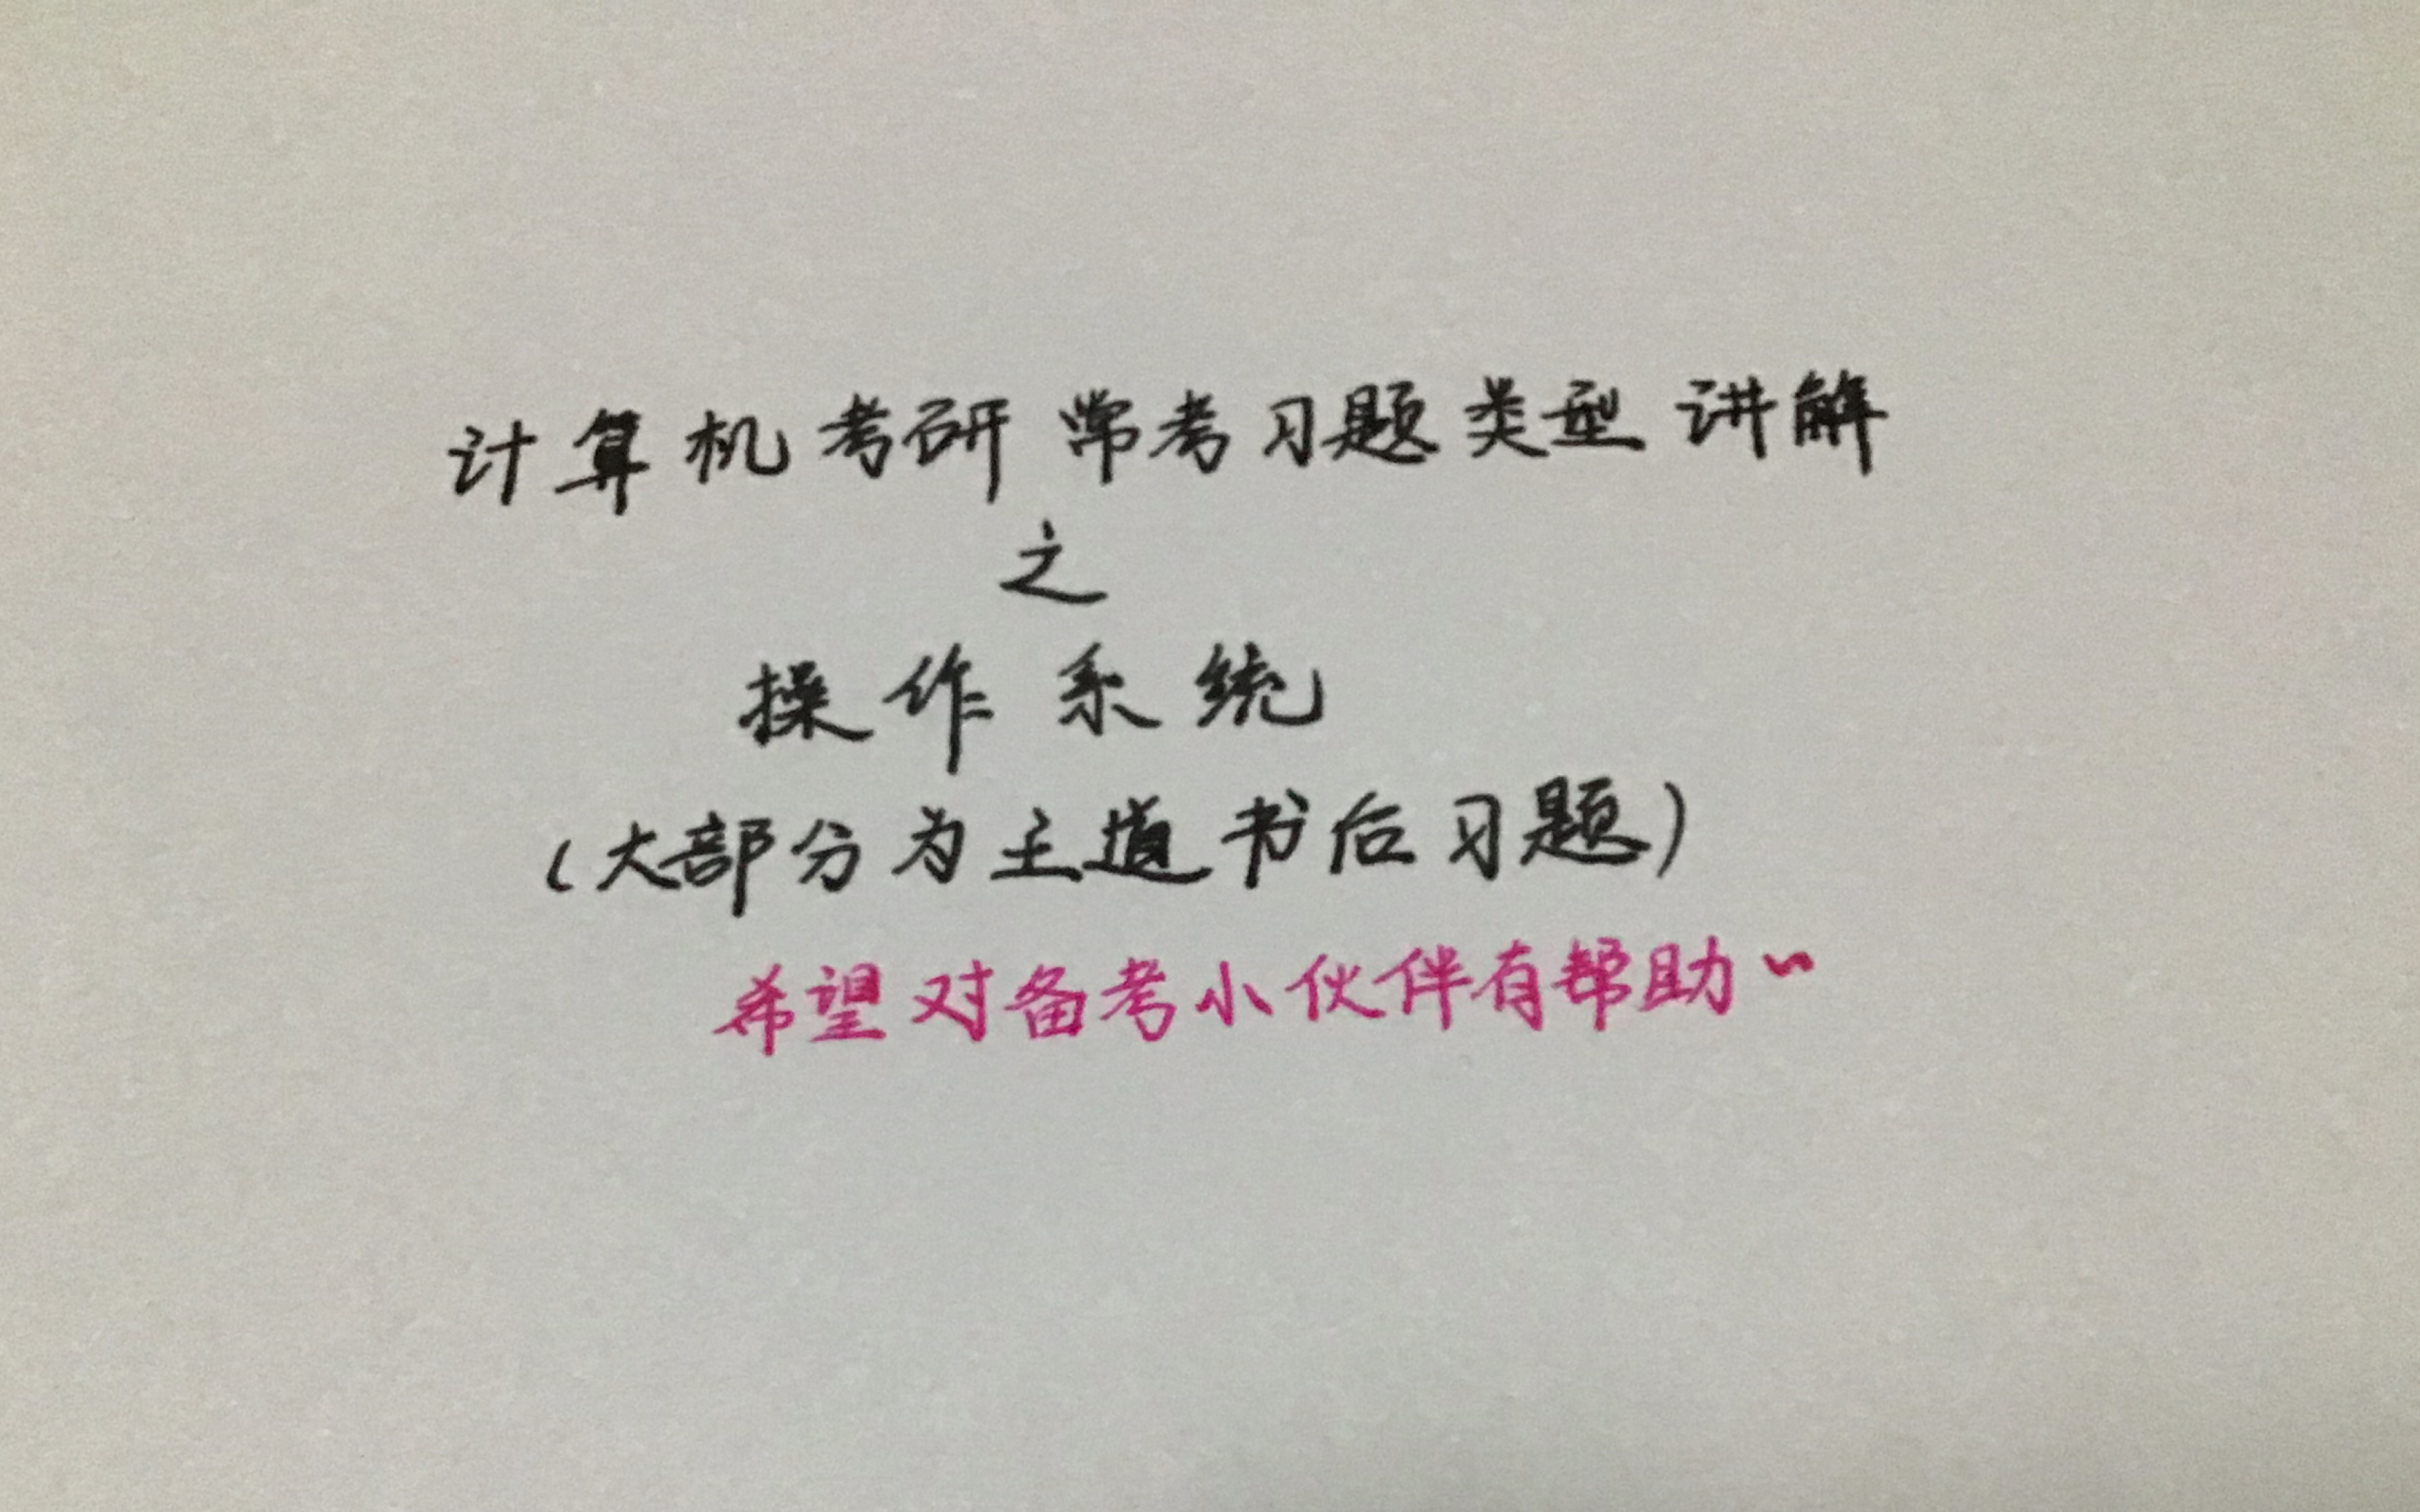 计算机考研常考习题类型讲解
之
操作系统
(大部分为王道书后习题)
希望对备考小伙伴有帮助~